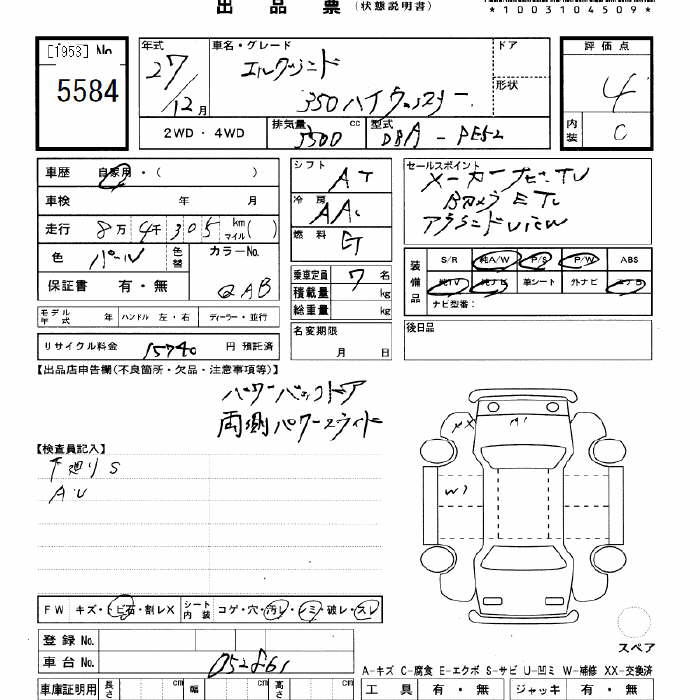 出品票 (状態説明書)
*1003104509*
[1953] No. 5584
年式 27/12月
車名・グレード エルグランド
350ハイウェイスター
ドア
形状
評価点 4
内装 C
2WD・4WD
排気量 3500 cc
型式 DBA-PE52
車歴 自家用・( )
車検 年 月
走行 8万4千305 km マイル( )
色 パール 色替
カラーNo. QAB
保証書 有・無
シフト AT
冷房 AAC
燃料 G
乗車定員 7名
積載量 kg
総重量 kg
名変期限 月 日
セールスポイント
メーカーナビ・TV
Bカメラ ETC
アラウンドView
装備品 S/R 純A/W P/S P/W ABS
純TV 純ナビ 革シート 外ナビ エアB
ナビ型番:
後日品
モデル年式 年 ハンドル 左・右 ディーラー・並行
リサイクル料金 15740 円 預託済
【出品店申告欄(不良箇所・欠品・注意事項等)】
パワーバックドア
両側パワースライド
【検査員記入】
下廻りS
AU
XX A1
W1
FW キズ・トビ石・割レX シート内装 コゲ・穴・汚レ・シミ・破レ・スレ
登録No.
車台No. 052861
スペア
A-キズ C-腐食 E-エクボ S-サビ U-凹ミ W-補修 XX-交換済
車庫証明用 長さ cm 幅 cm 高さ cm
工具 有・無 ジャッキ 有・無